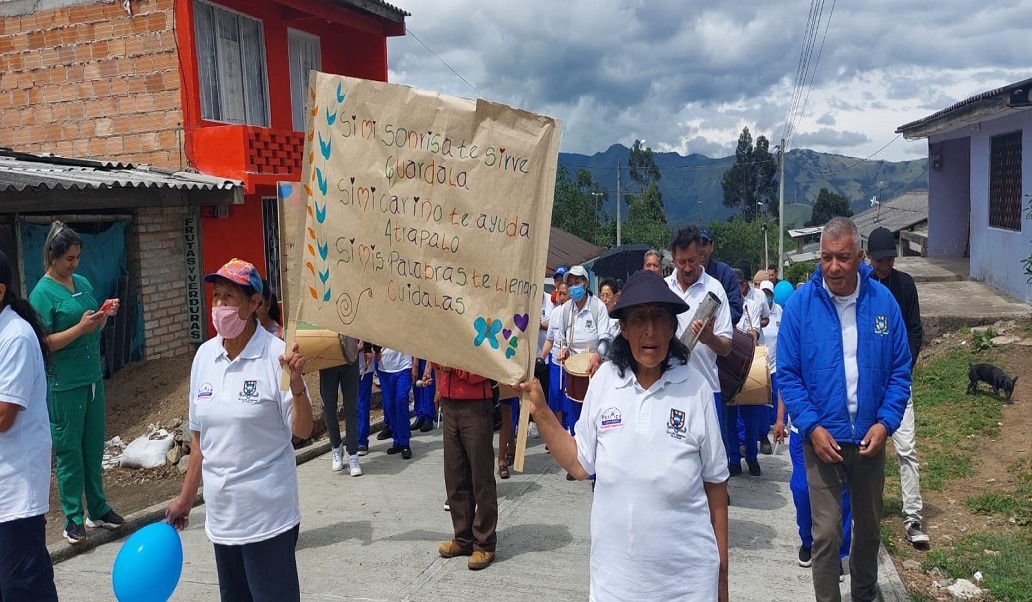 Si mi sonrisa te sirve
Guardala
Si mi cariño te ayuda
Atrapalo
Si mis Palabras te llenan
Cuidalas
FRUTAS Y VERDURAS